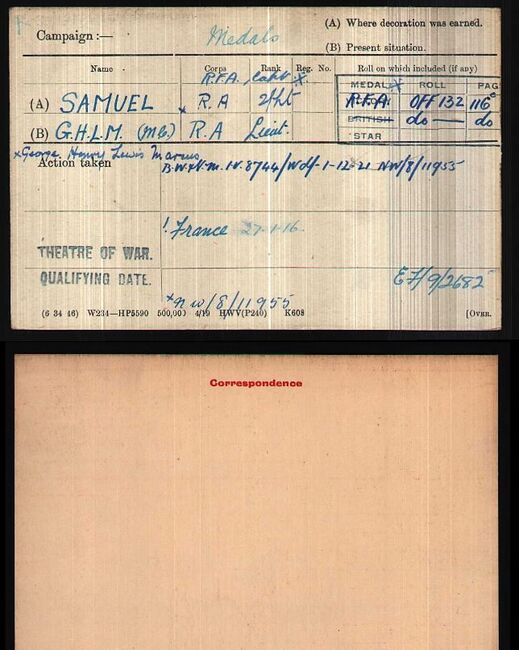 Campaign :— Medals
(A) Where decoration was earned.
(B) Present situation.
Name Corps Rank Reg. No. Roll on which included (if any)
R.F.A. Capt x
MEDAL ROLL PAGE
(A) SAMUEL x R.A 2/Lt R.F.A. OFF 132 116
BRITISH do — do
(B) G.H.L.M. R.A Lieut.
STAR
x George Henry Lewis Marcus
Action taken B.W.&V.M. I.V. 8744/Wdf-1-12-21 NW/8/11955
France 27-1-16.
THEATRE OF WAR.
QUALIFYING DATE.
EF/9/2682
x NW/8/11955
(6 34 46) W234—HP5590 500,000 4/19 HWV(P240) K608 [OVER.
Correspondence